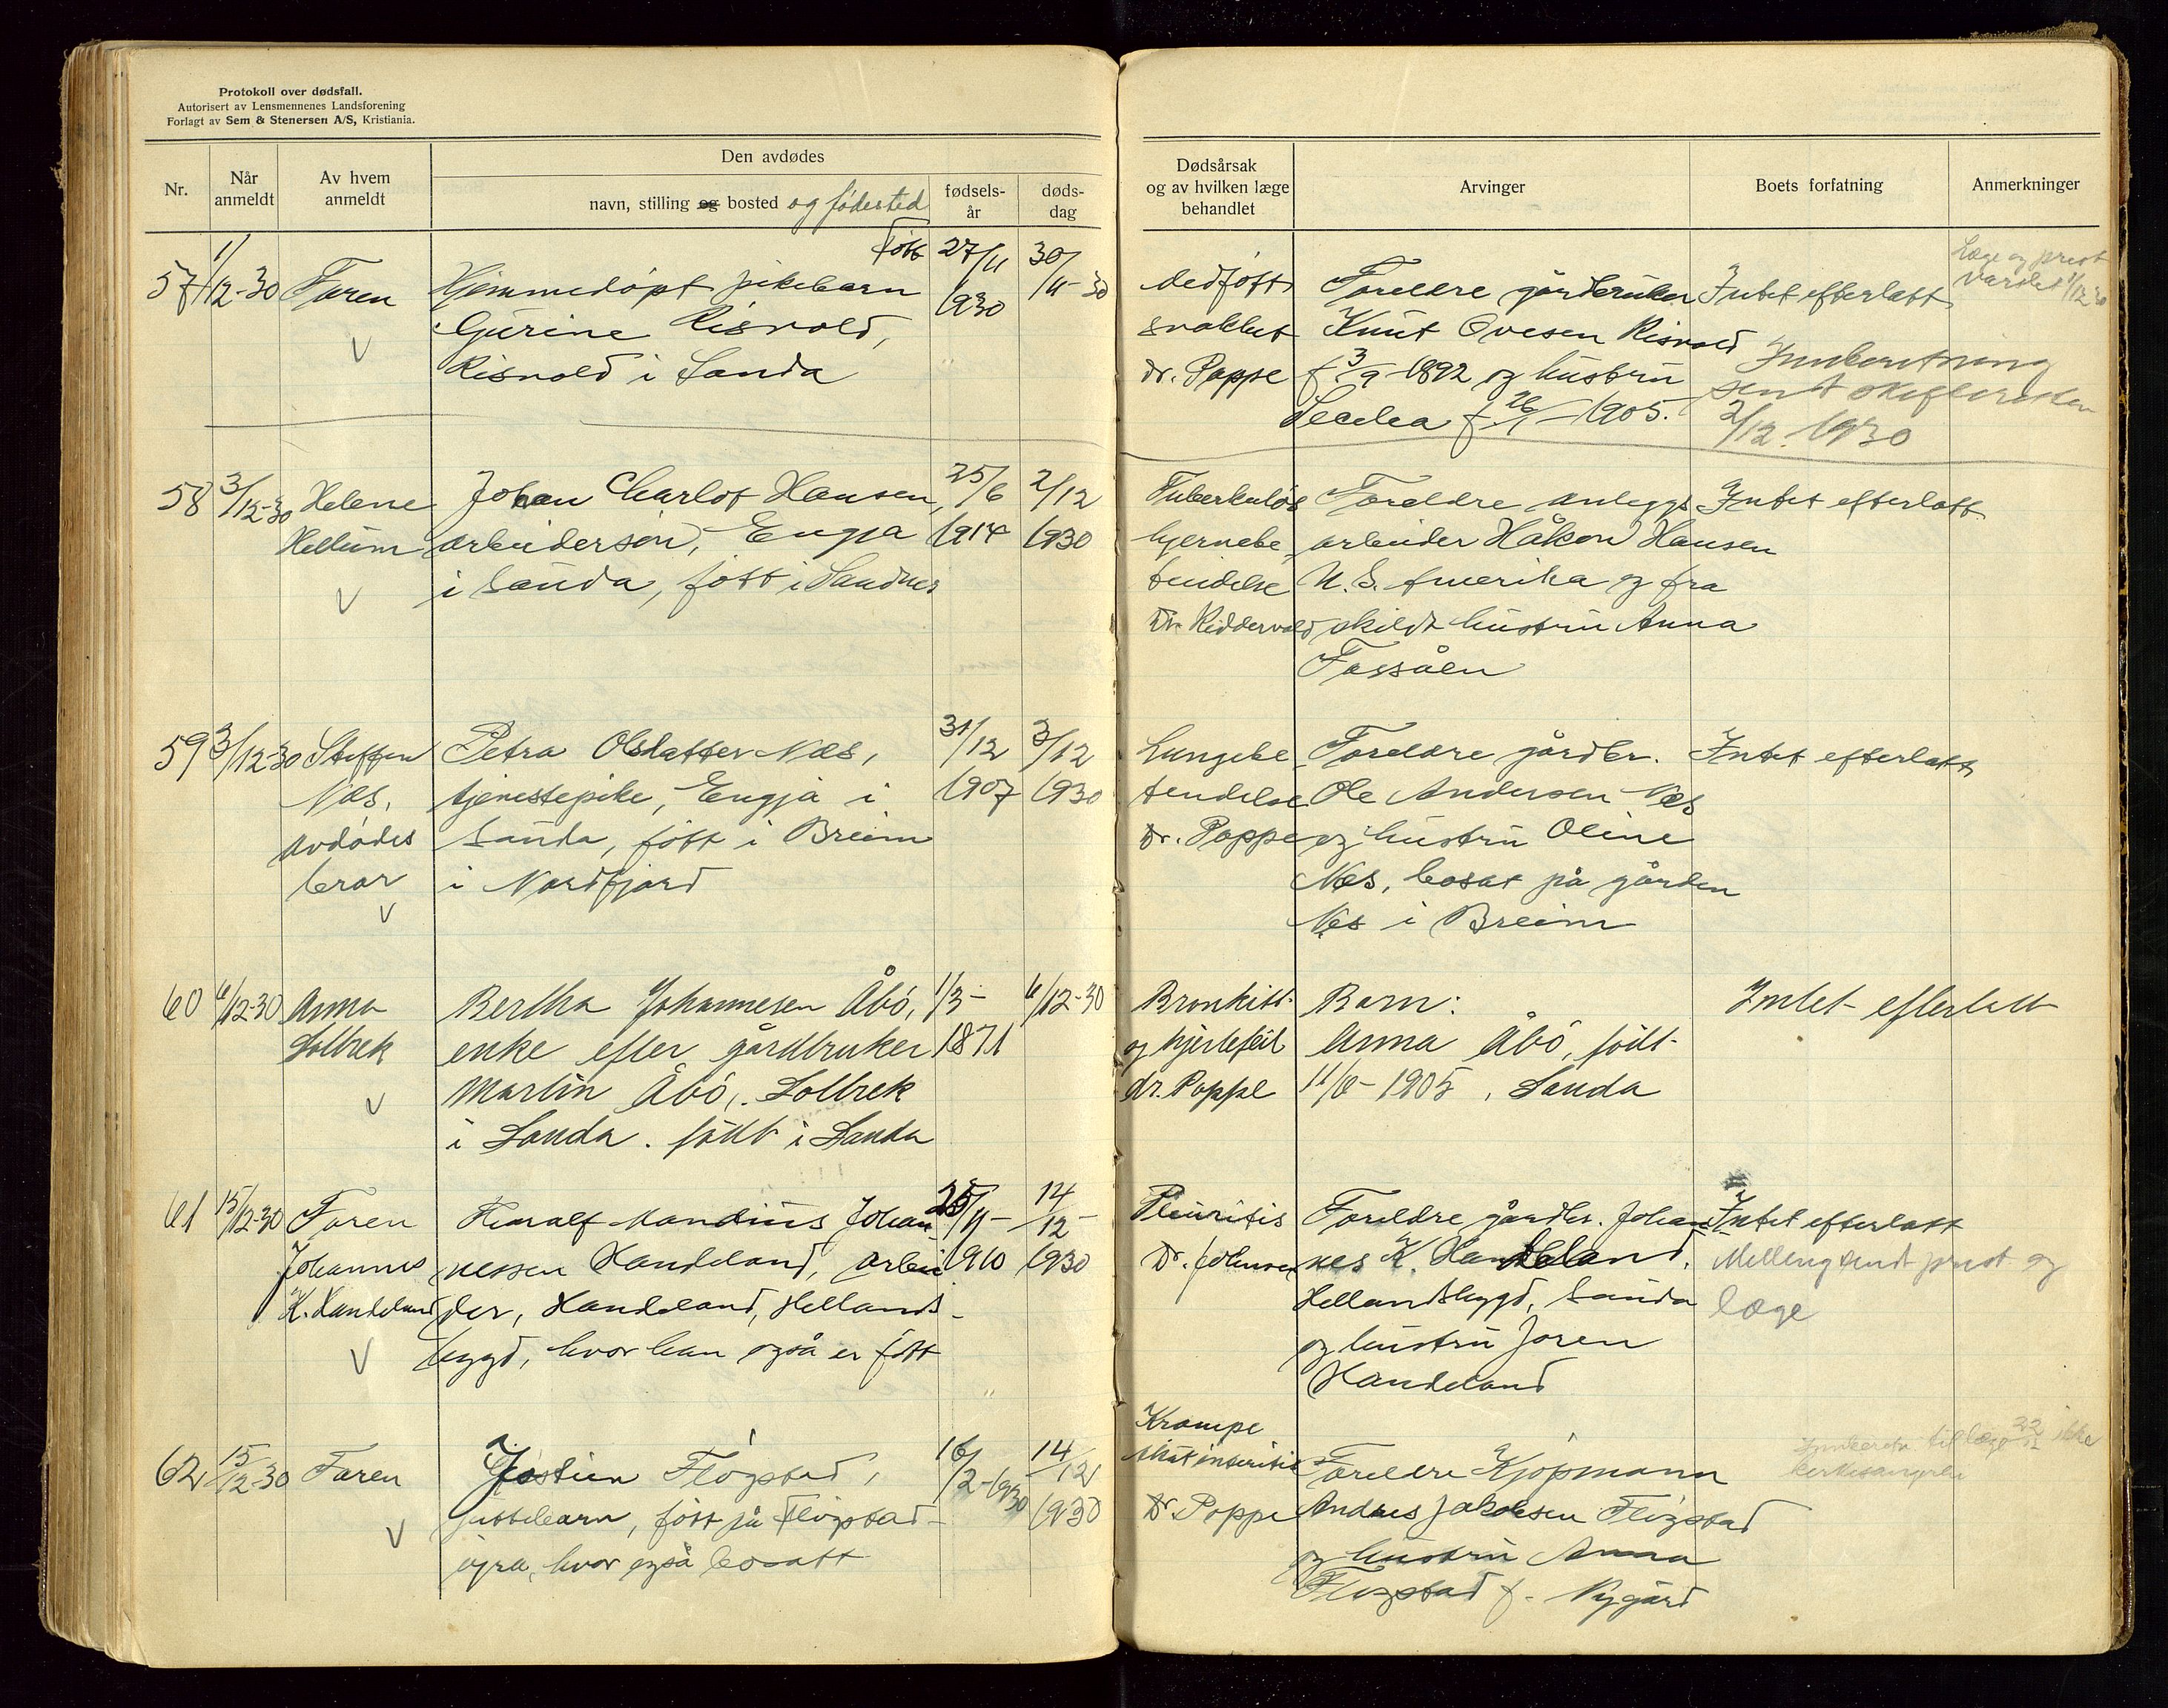 Protokoll over dødsfall.
Autorisert av Lensmennenes Landsforening
Forlagt av Sem & Stenersen A/S, Kristiania.
Nr.
Når anmeldt
Av hvem anmeldt
Den avdødes
navn, stilling og bosted og fødested
fødsels-år
døds-dag
Dødsårsak og av hvilken læge behandlet
Arvinger
Boets forfatning
Anmerkninger
57 1/12-30 Faren
Hjemmedøpt pikebarn født 27/11 1930 30/11-30
Gurine Risvold,
Risvold i Sauda
medfött svakhet dr. Poppe
Foreldre gårdbruker
Knut Ovesen Risvold
f 3/9-1892 og hustru
Secelea f. 26/1-1905.
Intet efterlatt
Innberetning
sent skifteretten
2/12. 1930
Læge og prest
varslet 1/12 30
58 3/12-30 Helene
Hellum
Johan Charlot Hansen, 25/6 1914 2/12 1930
arbeidersön, Engja
i Sauda, fött i Sandnes
Tuberkulös
hjernebe-
tendelse
Dr. Riddervold
Foreldre anleggs
arbeider Håkon Hansen
U.S. Amerika og fra
skildt hustru Anna
Fossåen
Intet efterlatt
59 3/12-30 Steffen
Næs,
avdødes
bror
Petra Olsdatter Næs, 31/12 1907 3/12 1930
tjenestepike, Engja i
Sauda, fött i Breim
i Nordfjord
Lungebe-
tendelse
Dr. Poppe
Foreldre gårdbr.
Ole Andersen Næs
og hustru Oline
Næs, bosat på gården
Nes i Breim
Intet efterlatt
60 6/12-30 Anna
Solbrek
Bertha Johannesen Åbö, 1/3-1871 6/12-30
enke efter gårdbruker
Martin Åbö, Solbrek
i Sauda. födt i Sauda
Bronkitt
og hjertefeil
dr. Poppe
Barn:
Anna Åbö, födt
11/6-1905, Sauda
Intet efterlatt
61 15/12-30 Faren
Johannes
K. Handeland
Mandius Johan- 25/11-1910 14/12-1930
nessen Handeland, arbei
der, Handeland, Hellands-
bygd, hvor han også er fött
Pleuritis
Dr. Johnsen
Foreldre gårdbr. Johan-
nes K. Handeland,
Hellandsbygd, Sauda
og hustru Joren
Handeland
Intet efterlatt
Melding sendt prest og
læge
62 15/12-30 Faren
Jostein Flögstad, 16/2-1930 14/12 1930
guttebarn, fött på Flögstad-
öyra, hvor også bosatt
Krampe
Dr Poppe
Foreldre Kjöpmann
Andreas Jakobsen Flögstad
og hustru Anna
Flögstad f. Nygård
til læge 22/12 ikke